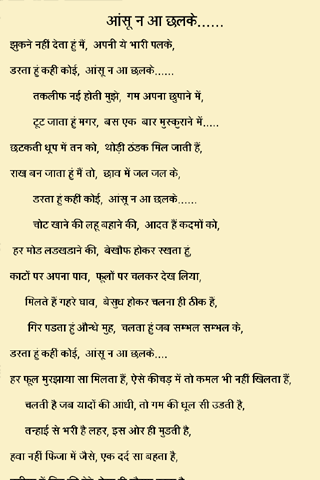 आंसू न आ छलके......
झुकने नहीं देता हूं मैं, अपनी ये भारी पलके,
डरता हूं कही कोई, आंसू न आ छलके......
तकलीफ नई होती मुझे, गम अपना छुपाने में,
टूट जाता हूं मगर, बस एक बार मुस्कुराने में.....
छटकती धूप में तन को, थोड़ी ठंडक मिल जाती हैं,
राख बन जाता हूं मैं तो, छाव में जल जल के,
डरता हूं कहीं कोई, आंसू न आ छलके......
चोट खाने की लहू बहाने की, आदत हैं कदमों को,
हर मोड लडखडाने की, बेखौफ होकर रखता हूं,
काटों पर अपना पाव, फूलों पर चलकर देख लिया,
मिलते हैं गहरे घाव, बेसुध होकर चलना ही ठीक हैं,
गिर पडता हूं औन्धे मुह, चलता हूं जब सम्भल सम्भल के,
डरता हूं कही कोई, आंसू न आ छलके....
हर फूल मुरझाया सा मिलता हैं, ऐसे कीचड़ में तो कमल भी नहीं खिलता हैं,
चलती है जब यादों की आंधी, तो गम की धूल सी उडती है,
तन्हाई से भरी है लहर, इस ओर ही मुडती है,
हवा नहीं फिजा में जैसे, एक दर्द सा बहता है,